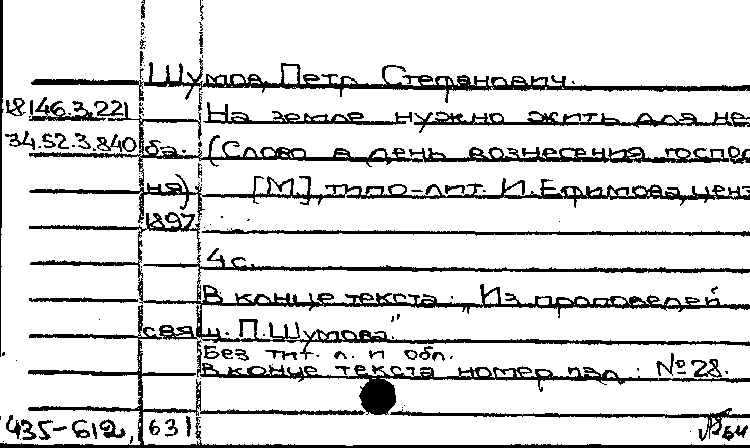 Шумов, Петр Степанович.
18146.3.221 На земле нужно жить для не-
34.52.3.840 ба. (Слово в день вознесения господ
ня). [М], типо-лит. И. Ефимова, ценз
1897.
4 с.
В конце текста: „Из проповедей
свящ. П. Шумова."
Без тит. л. и обл.
В конце текста номер изд.: № 28.
435-612, 631